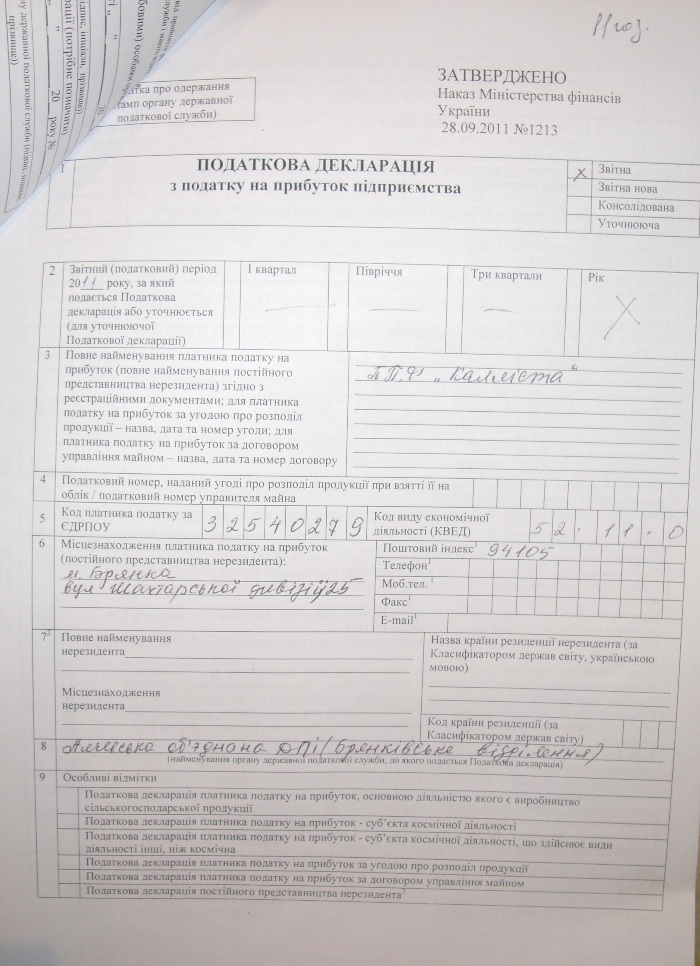 11 газ.
ЗАТВЕРДЖЕНО
Наказ Міністерства фінансів
України
28.09.2011 №1213
про одержання
органу державної
податкової служби)
1
ПОДАТКОВА ДЕКЛАРАЦІЯ
з податку на прибуток підприємства
X Звітна
Звітна нова
Консолідована
Уточнююча
2 Звітний (податковий) період
2011 року, за який
подається Податкова
декларація або уточнюється
(для уточнюючої
Податкової декларації)
І квартал
Півріччя
Три квартали
Рік
X
3 Повне найменування платника податку на
прибуток (повне найменування постійного
представництва нерезидента) згідно з
реєстраційними документами; для платника
податку на прибуток за угодою про розподіл
продукції – назва, дата та номер угоди; для
платника податку на прибуток за договором
управління майном – назва, дата та номер договору
ППФ „Калміста"
4 Податковий номер, наданий угоді про розподіл продукції при взятті її на
облік / податковий номер управителя майна
5 Код платника податку за
ЄДРПОУ
32540279
Код виду економічної
діяльності (КВЕД)
52.11.0
6 Місцезнаходження платника податку на прибуток
(постійного представництва нерезидента):
м. Брянка
вул Шахтарської дивізії 25
Поштовий індекс¹ 94105
Телефон¹
Моб.тел. ¹
Факс¹
E-mail¹
7² Повне найменування
нерезидента
Місцезнаходження
нерезидента
Назва країни резиденції нерезидента (за
Класифікатором держав світу, українською
мовою)
Код країни резиденції (за
Класифікатором держав світу)
8 Алчевська об'єднана ДПІ (Брянківське відділення)
(найменування органу державної податкової служби, до якого подається Податкова декларація)
9 Особливі відмітки
Податкова декларація платника податку на прибуток, основною діяльністю якого є виробництво
сільськогосподарської продукції
Податкова декларація платника податку на прибуток - суб'єкта космічної діяльності
Податкова декларація платника податку на прибуток - суб'єкта космічної діяльності, що здійснює види
діяльності інші, ніж космічна
Податкова декларація платника податку на прибуток за угодою про розподіл продукції
Податкова декларація платника податку на прибуток за договором управління майном
Податкова декларація постійного представництва нерезидента²